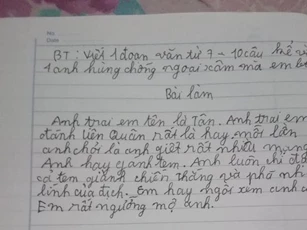 BT: Viết 1 đoạn văn từ 7 - 10 câu kể v
1 anh hùng chống ngoại xâm mà em b
Bài làm
Anh trai em tên là Tân. Anh trai em
đánh liên quân rất là hay mỗi lần
anh chơi là anh giết rất nhiều mạng
Anh hay gánh tem. Anh luôn chỉ
cả tem giành chiến thắng và phá nh
lính của địch. Em hay ngồi xem anh c
Em rất ngưỡng mộ anh.